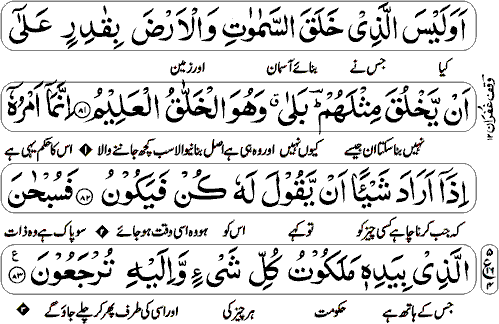 اَوَلَيْسَ الَّذِیْ خَلَقَ السَّمٰوٰتِ وَالْاَرْضَ بِقٰدِرٍ عَلٰۤی
کیا جس نے بنائے آسمان اور زمین
اَنْ یَّخْلُقَ مِثْلَهُمْ ؕ بَلٰی ۗ وَهُوَ الْخَلّٰقُ الْعَلِیْمُ ﴿۸۱﴾ اِنَّمَاۤ اَمْرُهٗۤ
نہیں بنا سکتا ان جیسے کیوں نہیں اور وہ ہی ہے اصل بنانیوالا سب کچھ جاننے والا ۱ اس کا حکم یہی ہے
اِذَاۤ اَرَادَ شَیْـًٔا اَنْ یَّقُوْلَ لَهٗ کُنْ فَیَکُوْنُ ﴿۸۲﴾ فَسُبْحٰنَ
کہ جب کرنا چاہے کسی چیز کو تو کہے اس کو ہو وہ اسی وقت ہو جائے ۲ سو پاک ہے وہ ذات
الَّذِیْ بِیَدِهٖ مَلَکُوْتُ کُلِّ شَیْءٍ وَّاِلَیْهِ تُرْجَعُوْنَ ﴿۸۳﴾
جس کے ہاتھ ہے حکومت ہر چیز کی اور اسی کی طرف پھر کر چلے جاؤ گے ۳